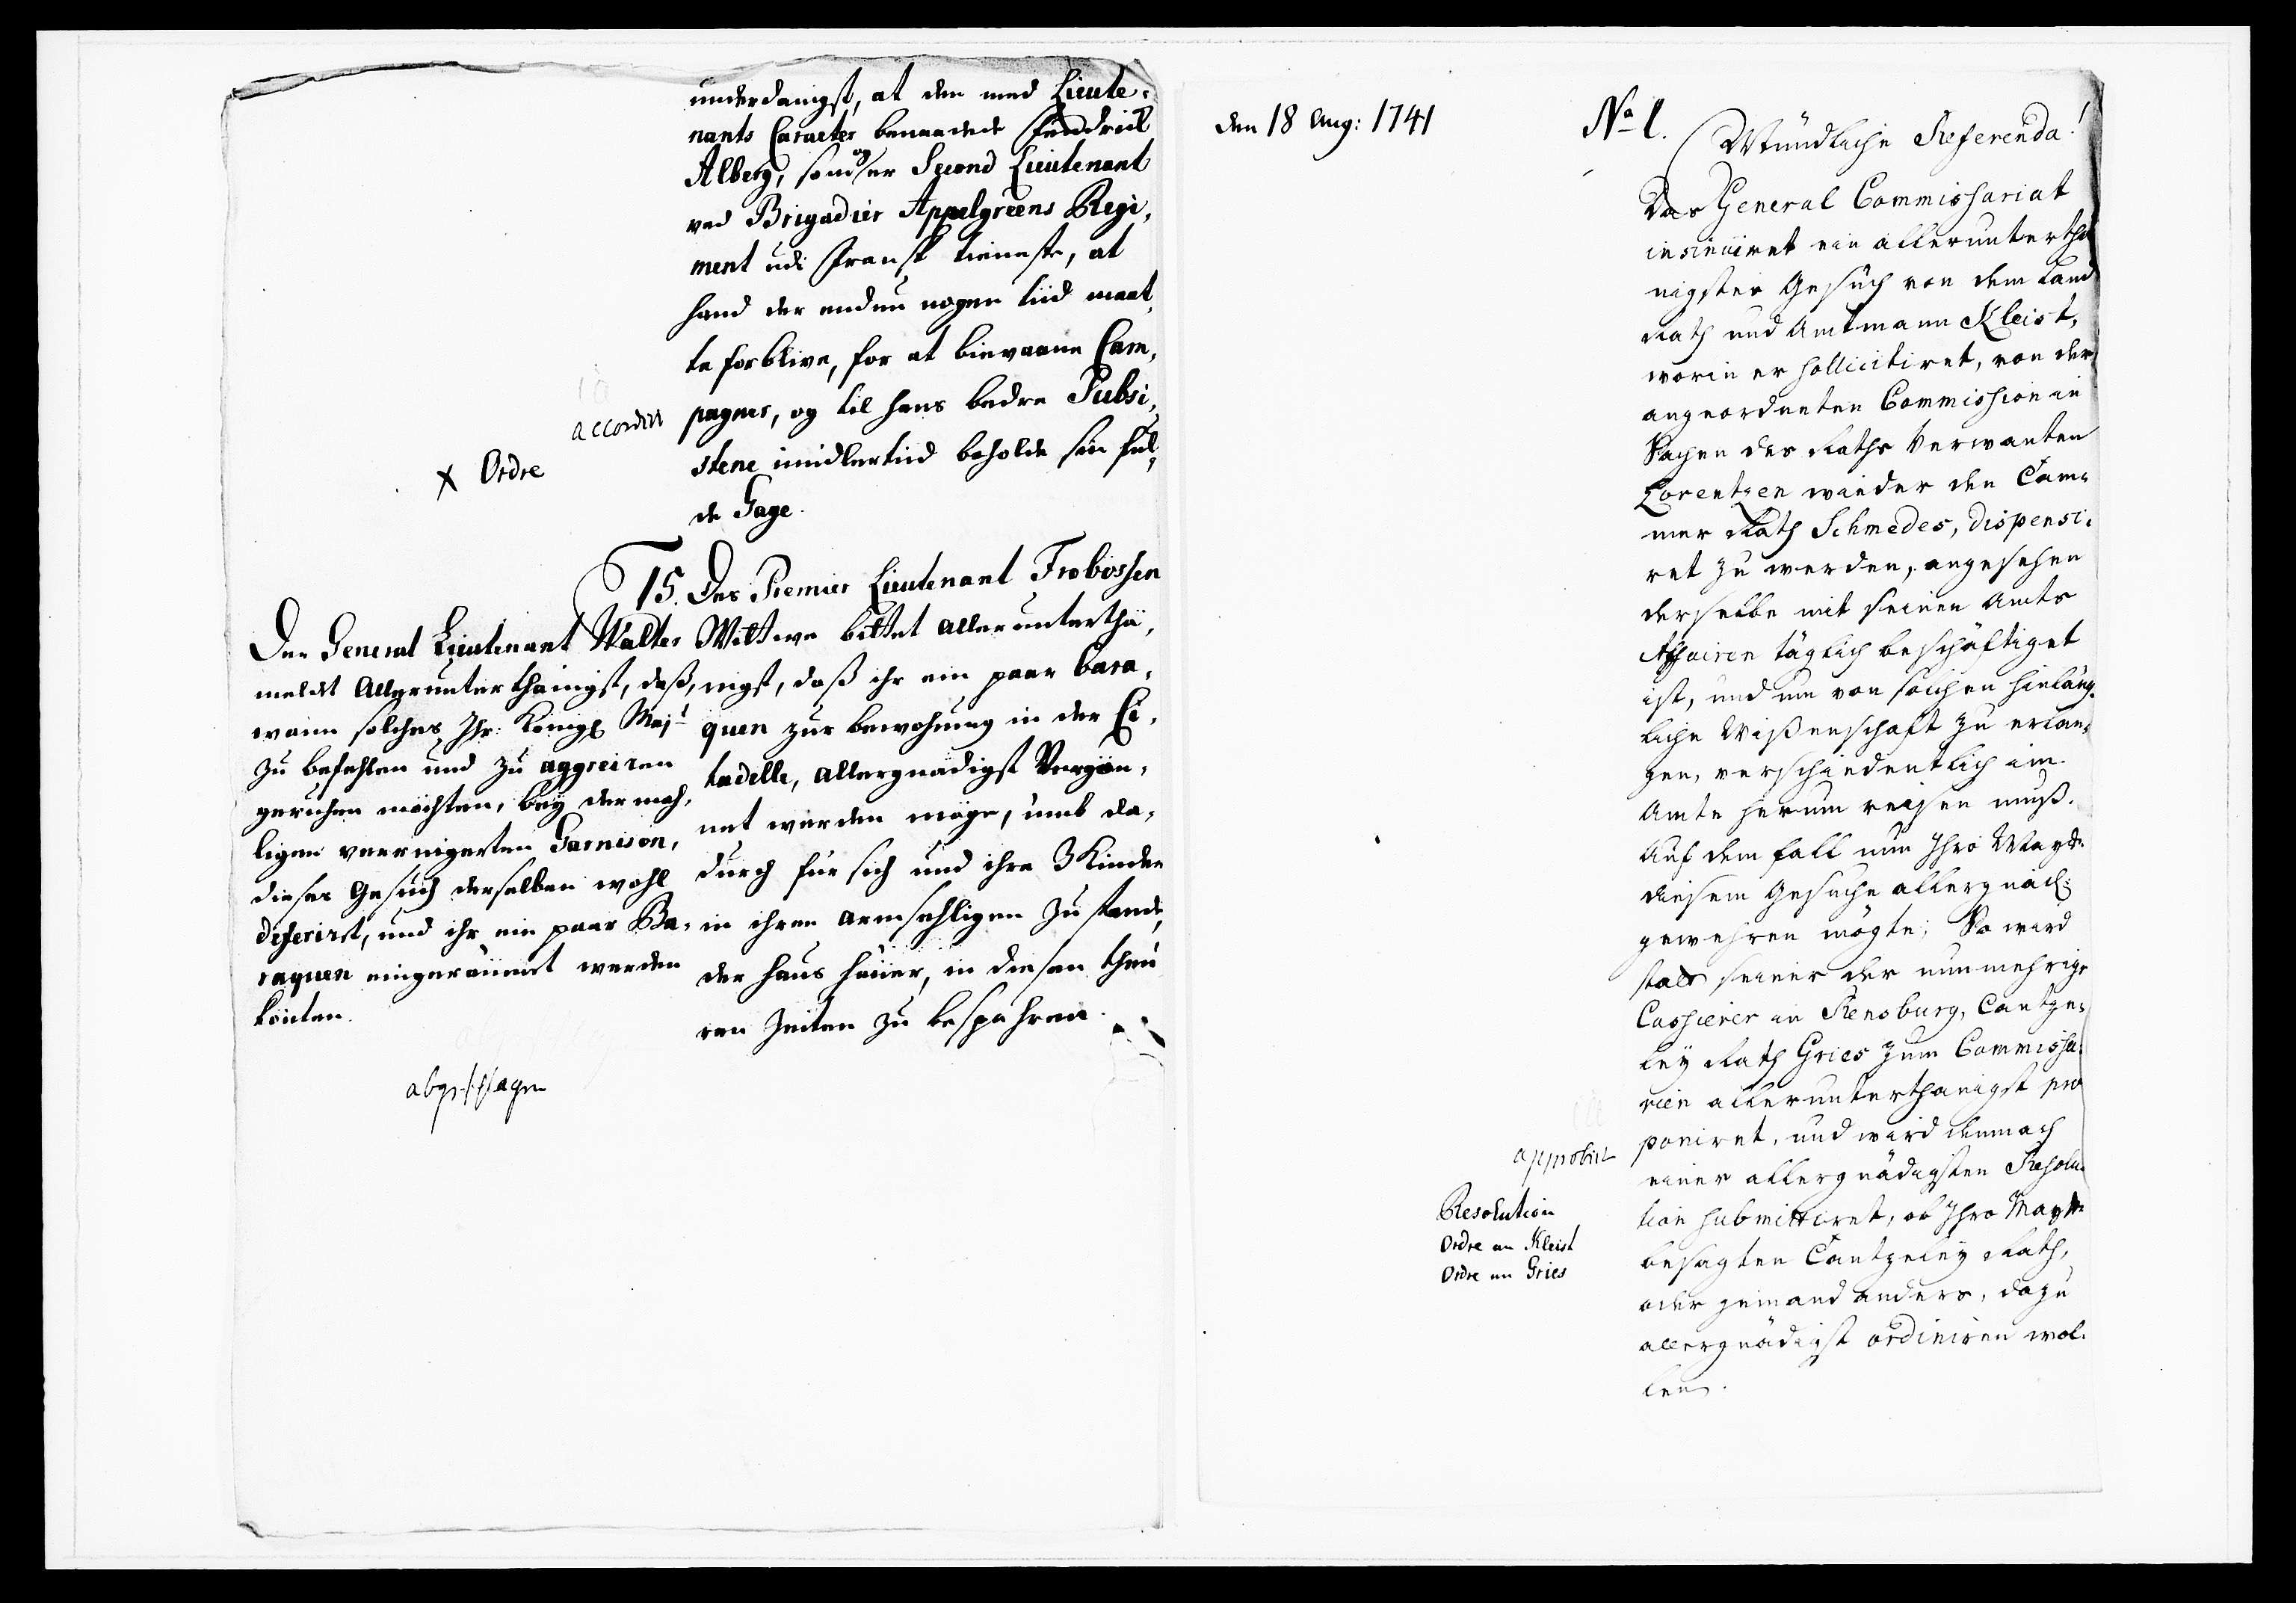 underdanigst, at den med Lieute-
nants Caracter benaadede Fendrick
Alberg, som og er Second Lieutenant
ved Brigadier Appelgreens Regi-
ment udi Fransk tieneste, at
hand der endnu nogen tiid maat-
te forblive, for at bievaane Cam-
pagner, og til hans bedre Subsi-
stene imidlertiid beholde sin ful-
de Gage.
accordirt
x Ordre
15. Des Premier Lieutenant Frobössen
Wittwe bittet allerunterthä-
nigst, daß ihr ein paar Bara-
quen zur bewohnung in der Ci-
tadelle, allergnädigst Vergön-
net werden möge, umb da-
durch für sich und ihre 3 Kinder
in ihren armsehligen Zustande,
der haus häüer, in diesen theü
ren Zeiten zu bespahren.
Der General Lieutenant Walter
meldet Allerunterthänigst, daß,
wann solches Ihr Königl Majt
zu befehlen und zu aggreiren
geruhen möchten, beÿ der mah-
ligen verringerten Garnison,
dieses Gesuch derselben wohl
deferirt, und ihr ein paar Ba-
raquen eingeräümet werden
könten.
abgeschlagen
den 18 Aug: 1741
No 1.
Mündliche Referenda!
Das General Commissariat
insinüiret ein allerunterthä
nigstes Gesuch von dem Land
Rath und Amtmann Kleist,
worin er sollicitiret, von der
angeordneten Commission in
Sachen des Raths Verwanten
Lorentzen wieder den Cam-
mer Rath Schmedes, dispensi-
ret zu werden, angesehen
derselbe mit seinen Amts
Affairen täglich beschäftiget
ist, und um von solchen hinläng-
liche Wißenschaft zu erlan-
gen, verschiedentlich im
Amte herum reisen muß.
Auf dem fall nun Ihro Maytt.
diesem Gesuche allergnäd:
gewehren mögte; So wird
statt seiner der nunmehrige
Cassierer in Rensburg, Cantze-
leÿ Rath Gries zum Commissa-
rien allerunterthänigst pro
poniret, und wird demnach
einer allergnädigsten Resolu-
tion submittiret, ob Ihro Maytt.
besagten Cantzeleÿ Rath,
oder jemand anders, dazu
allergnädigst ordiniren wol-
len.
approbirt
Resolution
Ordre an Kleist
Ordre an Gries